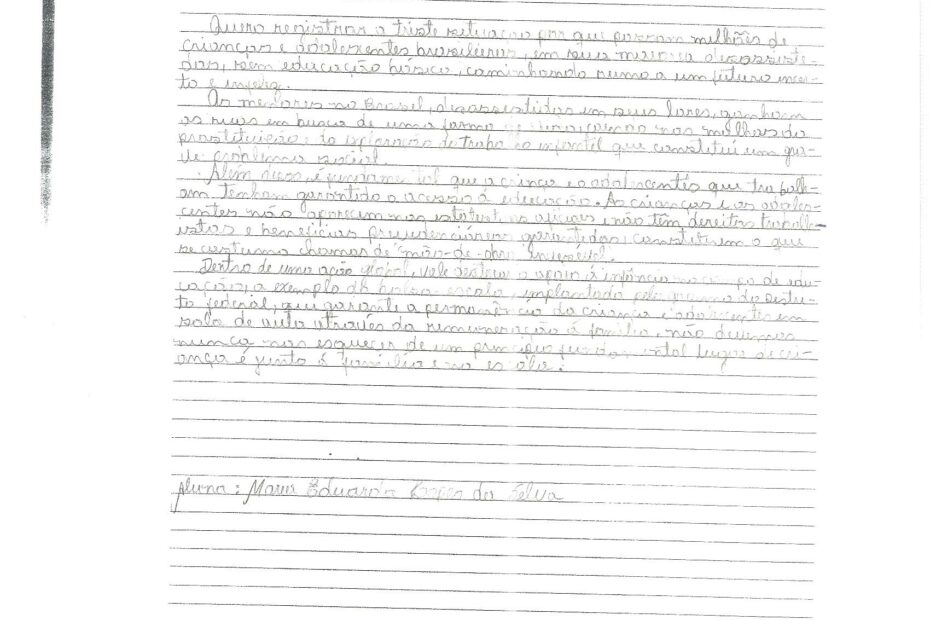 Quero registrar a triste situação por que passam milhões de
crianças e adolescentes brasileiros, em sua maioria desassisti-
das, sem educação básica, caminhando rumo a um futuro incer-
to e infeliz.
Os menores no Brasil, desassistidos em seus lares, ganham
as ruas em busca de uma forma de caindo nas malhas da
prostituição e da exploração do trabalho infantil que constitui um gra-
ve problema social.
Além disso, é fundamental que a criança e o adolescentes que trabalh-
am tenham garantido o acesso à educação. As crianças e os adoles-
centes não aparecem nas oficiais, não têm dereitos trabalh-
istas e benefícios garantidos, constituem o que
se costuma chamar de "mão-de-obra invisível".
Dentro de uma ação global, vale destacar o apoio à infância no campo da edu-
cação, a exemplo da bolsa-escola, implantada pelo governo do distri-
to federal, que garante a permanência da criança e adolescentes em
sala de aula através da remuneração à família, não devemos
nunca nos esquecer de um princípio fundamental lugar de cri-
ança é junto à família e na escola.
Aluna: Maria Eduarda da Silva